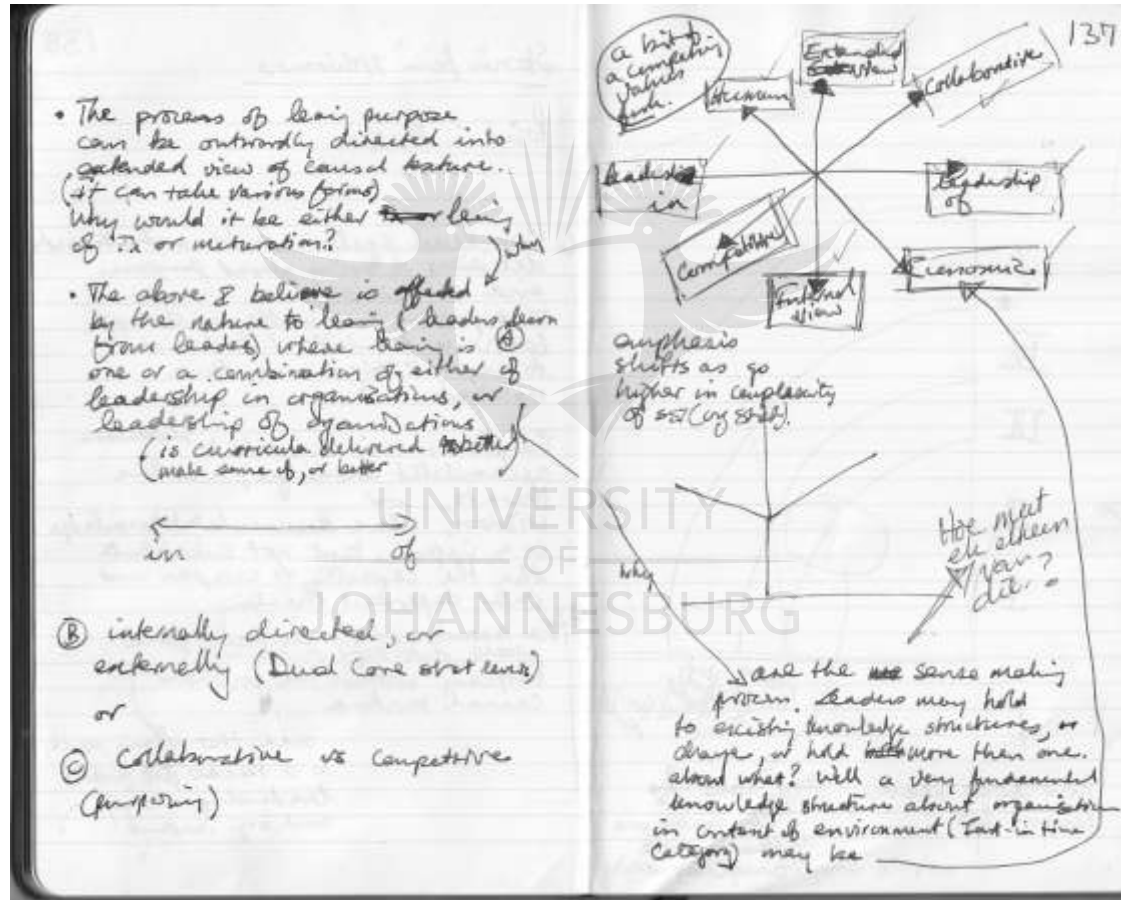 • The process of leaing purpose
can be outwardly directed into
extended view of causal texture..
(it can take various forms)
Why would it be either leaing
of or maturation?
why
• The above I believe is affected
by the nature to leaing (leaders learn
from leader) where leaing is Ⓐ
one or a combination of either of
leadership in organisations, or
leadership of organisations
(is curricula delivered
(make sense of, or better
in of
Ⓑ internally directed, or
externally (Dual Core strat lens)
or
Ⓒ Collaborative vs Competitive
(purposing)
137
a bit of
a competing
values
Human
Extended
view
Collaborative
leadership
in
leadership
of
Competitive
Internal
view
Economic
emphasis
shifts as go
higher in complexity
of
why
Hoe meet
ek elkeen
van
die..
and the sense making
process. Leaders may hold
to existing knowledge structures, or
change, or hold more than one.
about what? Well a very fundamental
knowledge structure about organisation
in context of environment (Last-in time
category) may be
UNIVERSITY
OF
JOHANNESBURG